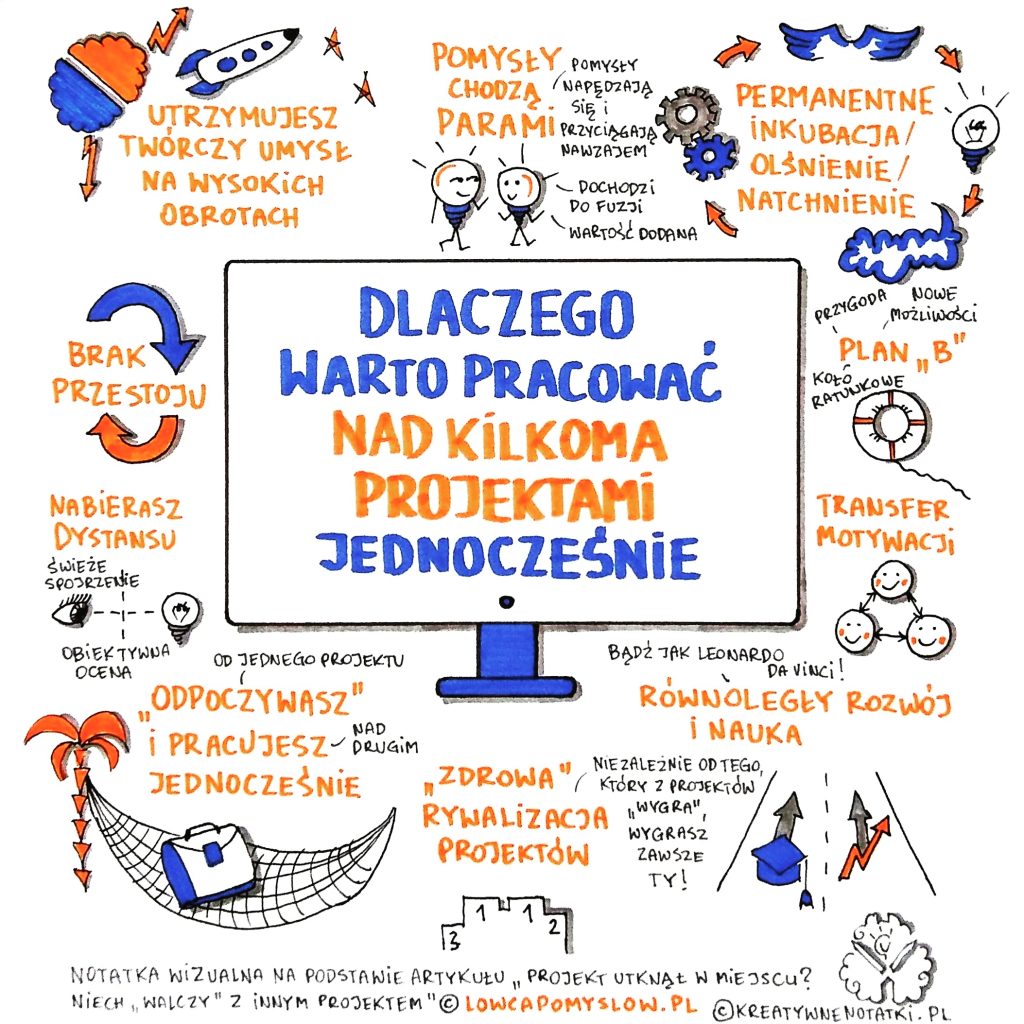 UTRZYMUJESZ
TWÓRCZY UMYSŁ
NA WYSOKICH
OBROTACH
POMYSŁY
CHODZĄ
PARAMI
POMYSŁY
NAPĘDZAJĄ
SIĘ I
PRZYCIĄGAJĄ
NAWZAJEM
DOCHODZI
DO FUZJI
WARTOŚĆ DODANA
PERMANENTNE
INKUBACJA/
OLŚNIENIE/
NATCHNIENIE
DLACZEGO
WARTO PRACOWAĆ
NAD KILKOMA
PROJEKTAMI
JEDNOCZEŚNIE
BRAK
PRZESTOJU
PRZYGODA
NOWE
MOŻLIWOŚCI
PLAN „B"
KOŁO
RATUNKOWE
NABIERASZ
DYSTANSU
ŚWIEŻE
SPOJRZENIE
OBIEKTYWNA
OCENA
TRANSFER
MOTYWACJI
OD JEDNEGO PROJEKTU
„ODPOCZYWASZ"
I PRACUJESZ
JEDNOCZEŚNIE
NAD
DRUGIM
BĄDŹ JAK LEONARDO
DA VINCI!
RÓWNOLEGŁY ROZWÓJ
I NAUKA
„ZDROWA"
RYWALIZACJA
PROJEKTÓW
NIEZALEŻNIE OD TEGO,
KTÓRY Z PROJEKTÓW
„WYGRA",
WYGRASZ
ZAWSZE
TY!
3 1 1 2
NOTATKA WIZUALNA NA PODSTAWIE ARTYKUŁU „PROJEKT UTKNĄŁ W MIEJSCU?
NIECH „WALCZY" Z INNYM PROJEKTEM" © LOWCAPOMYSLOW.PL
©KREATYWNENOTATKI.PL